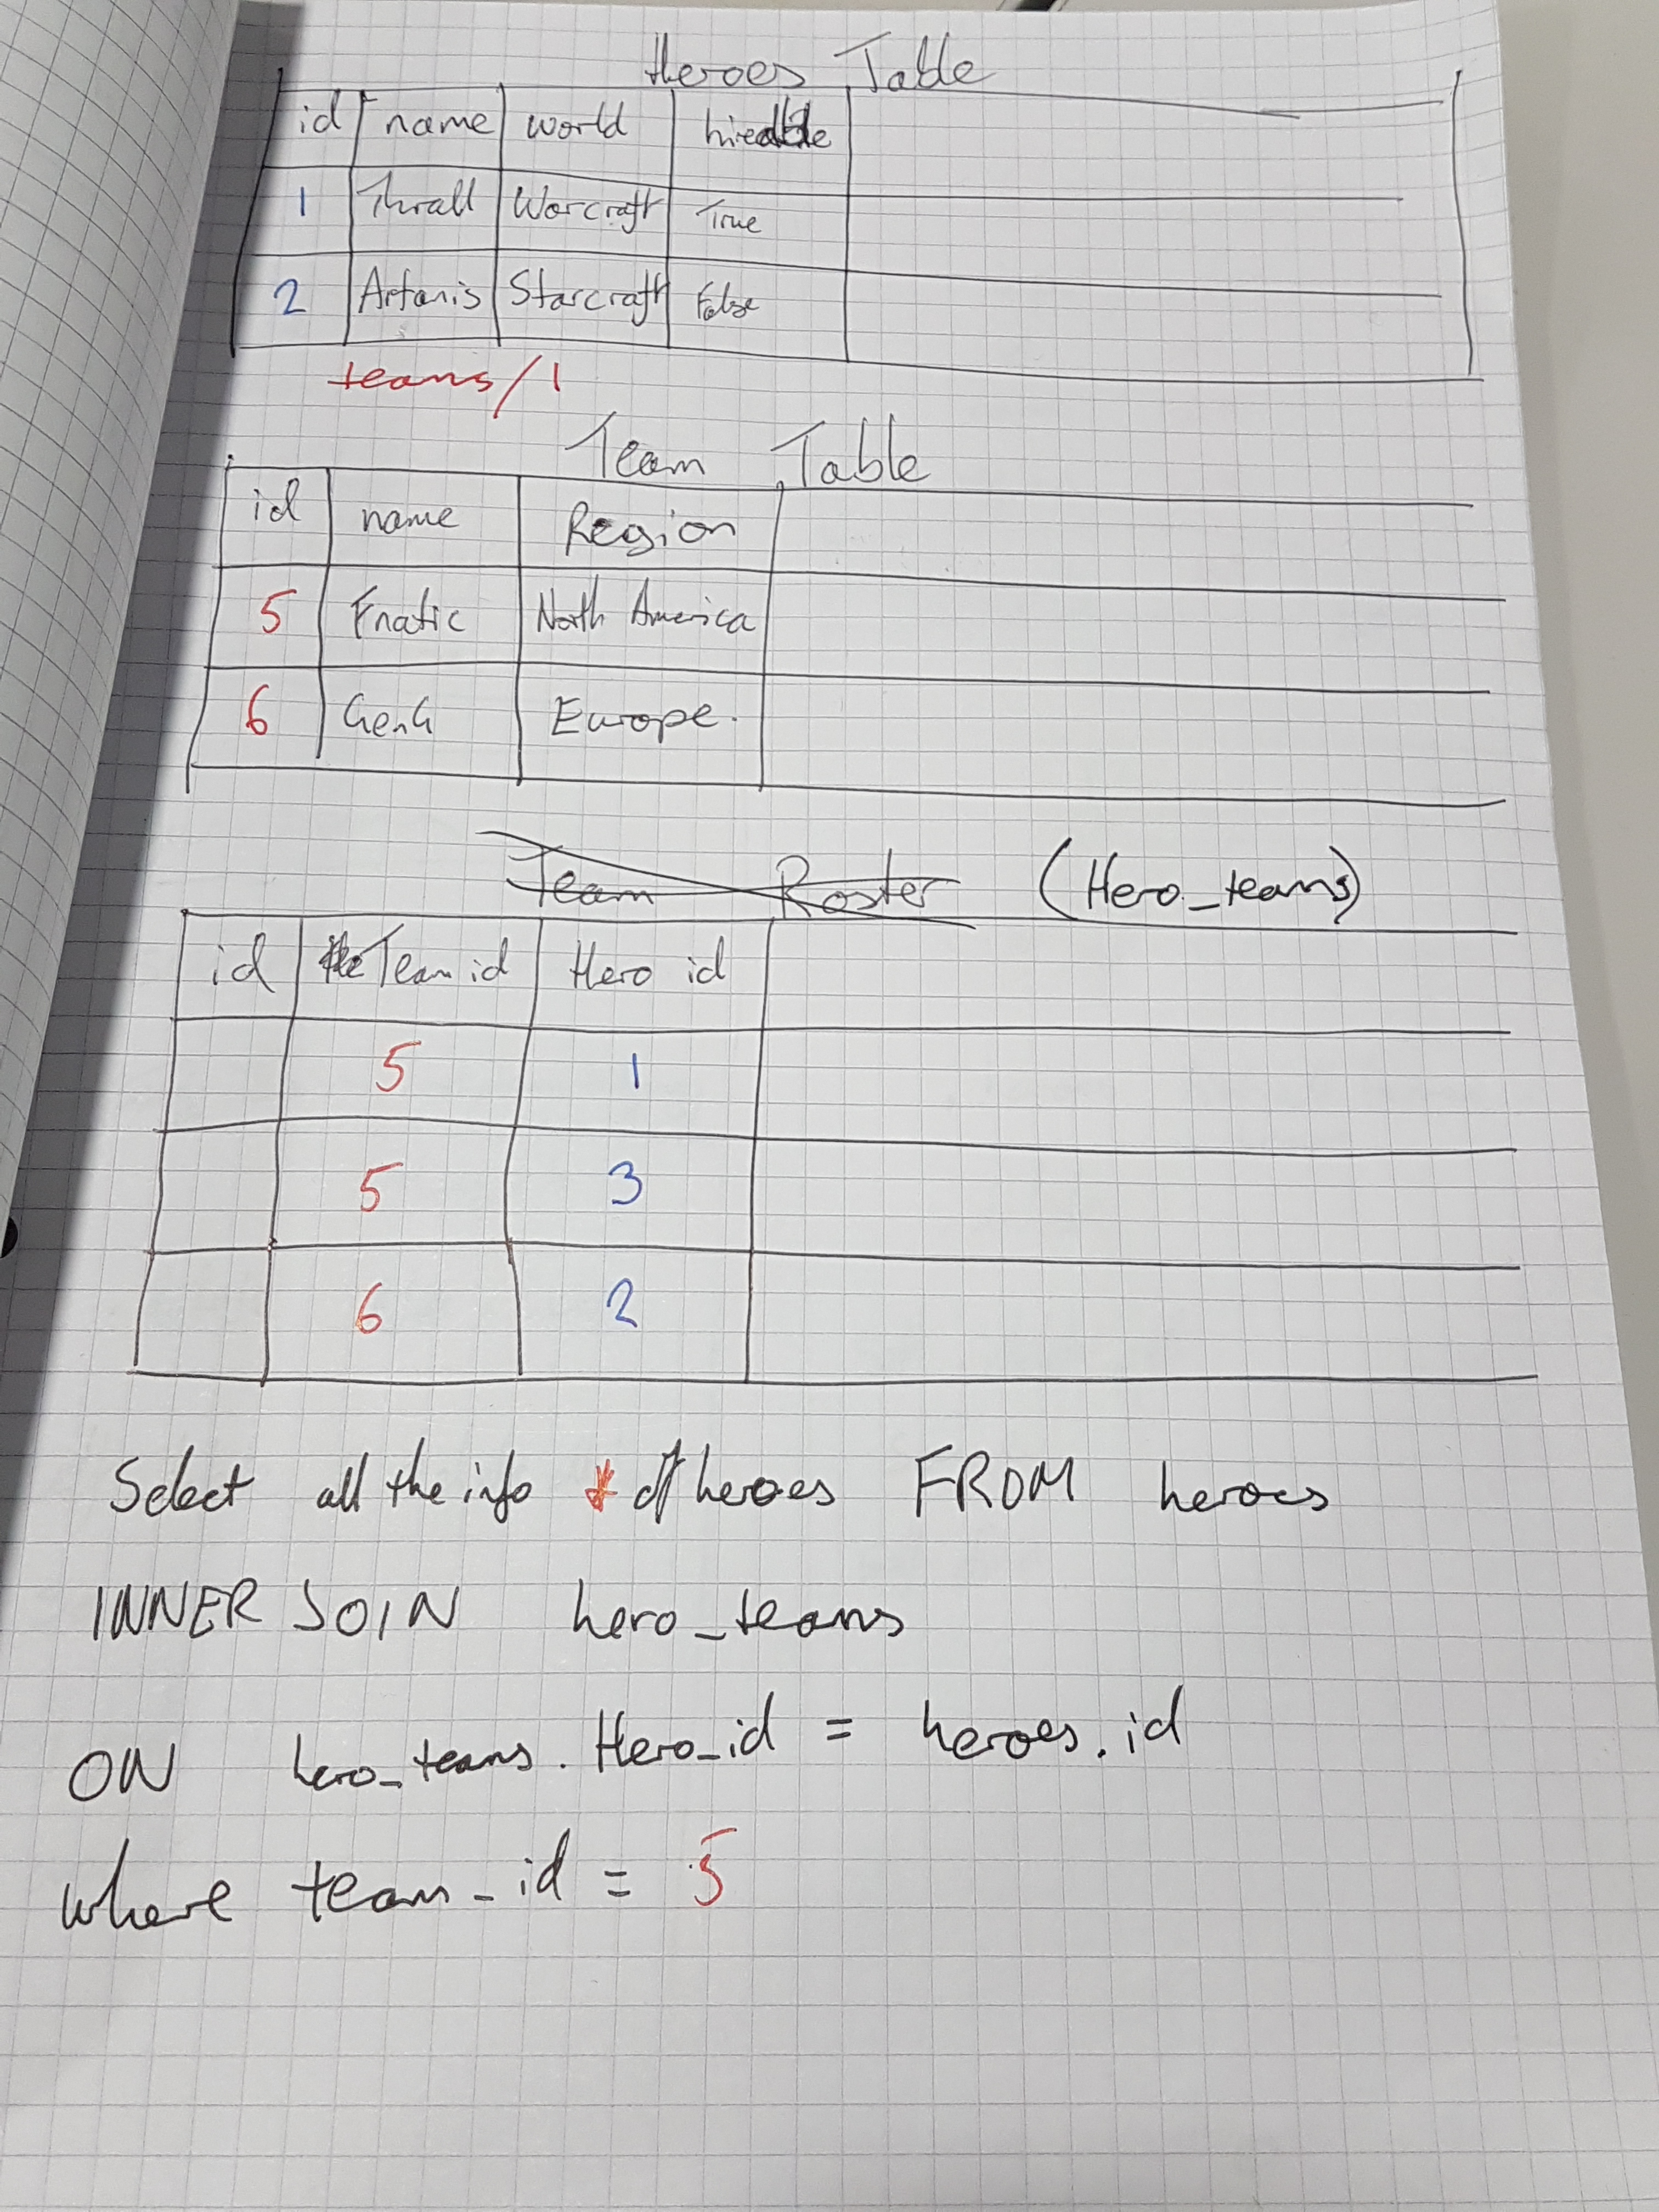 Heroes Table
id name world hireable
1 Thrall Warcraft True
2 Artanis Starcraft False
teams/1
Team Table
id name Region
5 Fnatic North America
6 Gen.G Europe.
Team Roster (Hero_teams)
id Team id Hero id
5 1
5 3
6 2
Select all the info * of heroes FROM heroes
INNER JOIN hero_teams
ON hero_teams.Hero_id = heroes.id
where team_id = 5